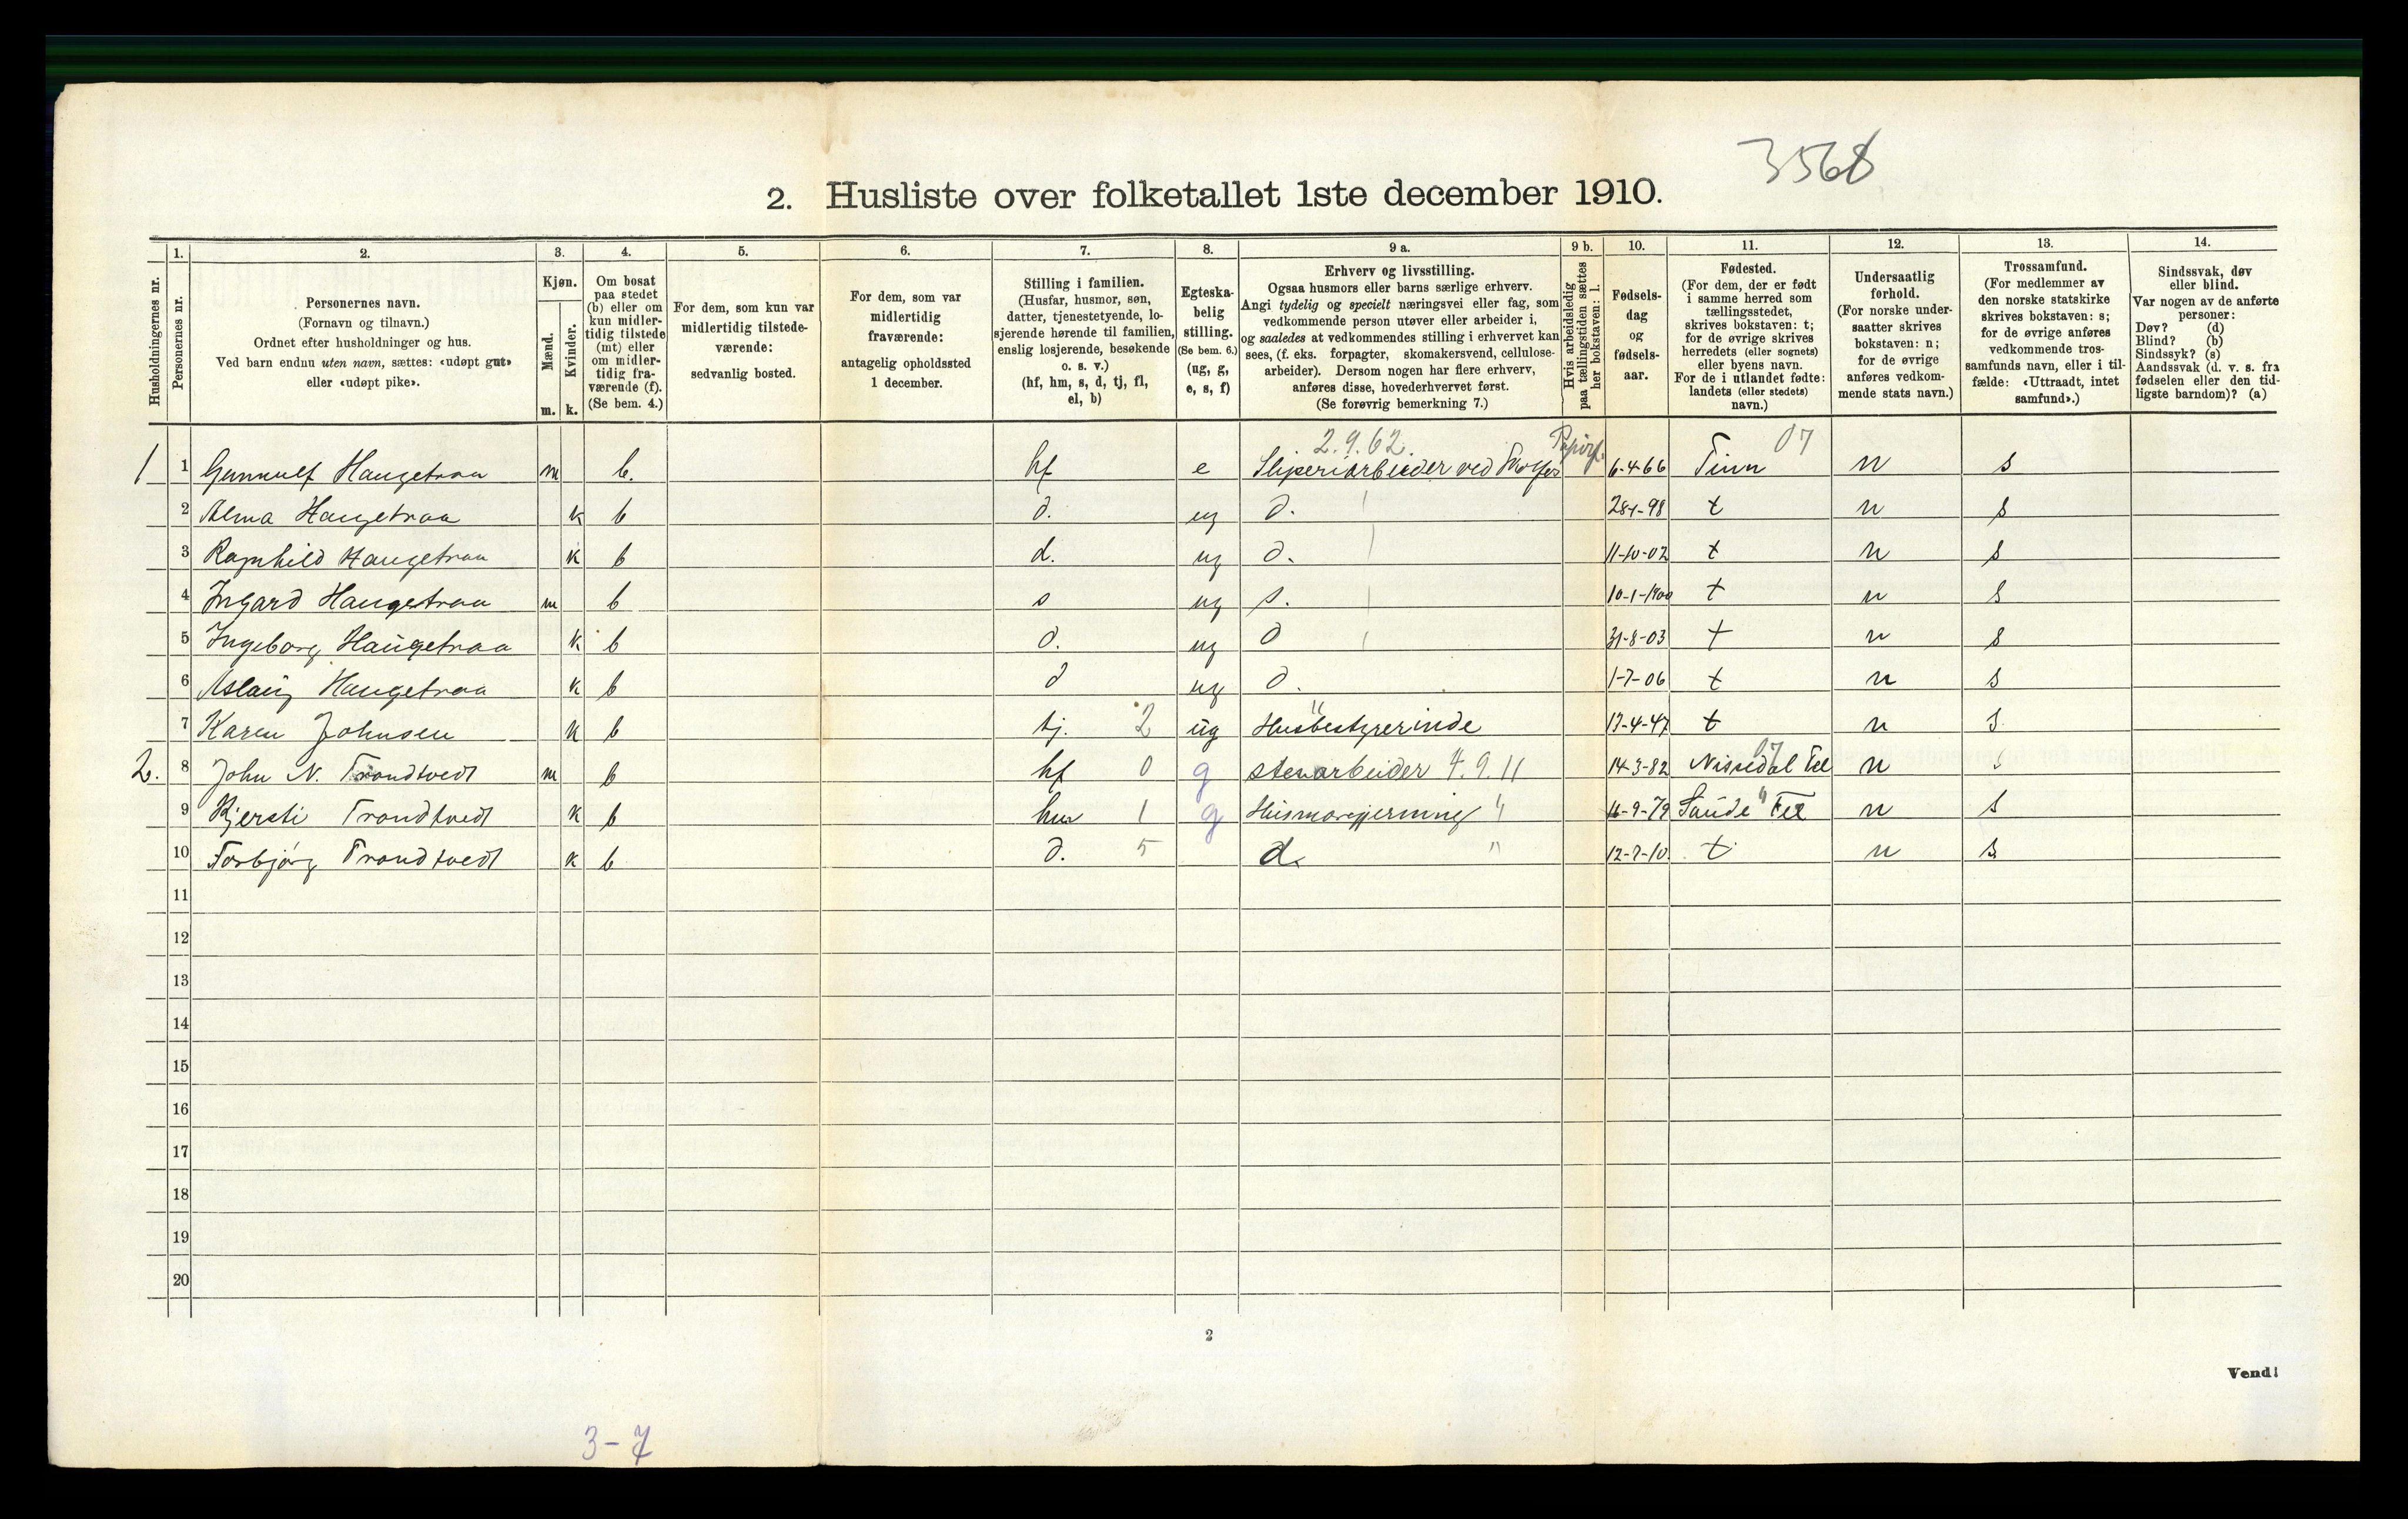 3568
2. Husliste over folketallet 1ste december 1910.
Husholdningernes nr.
1. Personernes nr.
2. Personernes navn. (Fornavn og tilnavn.) Ordnet efter husholdninger og hus. Ved barn endnu uten navn, sættes: «udøpt gut» eller «udøpt pike».
3. Kjøn. Mænd. m. Kvinder. k.
4. Om bosat paa stedet (b) eller om kun midler-tidig tilstede (mt) eller om midler-tidig fra-værende (f). (Se bem. 4.)
5. For dem, som kun var midlertidig tilstede-værende: sedvanlig bosted.
6. For dem, som var midlertidig fraværende: antagelig opholdssted 1 december.
7. Stilling i familien. (Husfar, husmor, søn, datter, tjenestetyende, lo-sjerende hørende til familien, enslig losjerende, besøkende o. s. v.) (hf, hm, s, d, tj, fl, el, b)
8. Egteska-belig stilling. (Se bem. 6.) (ug, g, e, s, f)
9 a. Erhverv og livsstilling. Ogsaa husmors eller barns særlige erhverv. Angi tydelig og specielt næringsvei eller fag, som vedkommende person utøver eller arbeider i, og saaledes at vedkommendes stilling i erhvervet kan sees, (f. eks. forpagter, skomakersvend, cellulose-arbeider). Dersom nogen har flere erhverv, anføres disse, hovederhvervet først. (Se forøvrig bemerkning 7.)
9 b. Hvis arbeidsledig paa tællingstiden sættes her bokstaven: l.
10. Fødsels-dag og fødsels-aar.
11. Fødested. (For dem, der er født i samme herred som tællingsstedet, skrives bokstaven: t; for de øvrige skrives herredets (eller sognets) eller byens navn. For de i utlandet fødte: landets (eller stedets) navn.)
12. Undersaatlig forhold. (For norske under-saatter skrives bokstaven: n; for de øvrige anføres vedkom-mende stats navn.)
13. Trossamfund. (For medlemmer av den norske statskirke skrives bokstaven: s; for de øvrige anføres vedkommende tros-samfunds navn, eller i til-fælde: «Uttraadt, intet samfund».)
14. Sindssvak, døv eller blind. Var nogen av de anførte personer: Døv? (d) Blind? (b) Sindssyk? (s) Aandssvak (d. v. s. fra fødselen eller den tid-ligste barndom)? (a)
2.9.62. Papirf. 07
1 1 Gunnulf Haugetraa m b. hf e Sliperiarbeider ved 6-4-66 Tinn n s
2 Alma Haugetraa k b d. ug d. 28-1-98 t n s
3 Ragnhild Haugetraa k b d. ug d. 11-10-02 t n s
4 Ingard Haugetraa m b s ug s. 10-1-1900 t n s
5 Ingeborg Haugetraa k b d. ug d 31-8-03 t n s
6 Aslaug Haugetraa k b d ug d. 1-7-06 t n s
7 Karen Johnsen k b tj. 2 ug Husbestyrerinde 13-4-47 t n s
2. 8 John N. Trondtvedt m b hf 0 g stenarbeider 4.9.11 14-3-82 Nissedal Tel 07 n s
9 Kjersti Trondtvedt k b hm 1 g Husmorgjerning " 16-9-79 Saude " Tel n s
10 Torbjørg Trondtvedt k b d. 5 d. " 12-7-10. t n s
11
12
13
14
15
16
17
18
19
20
2
Vend!
3-7